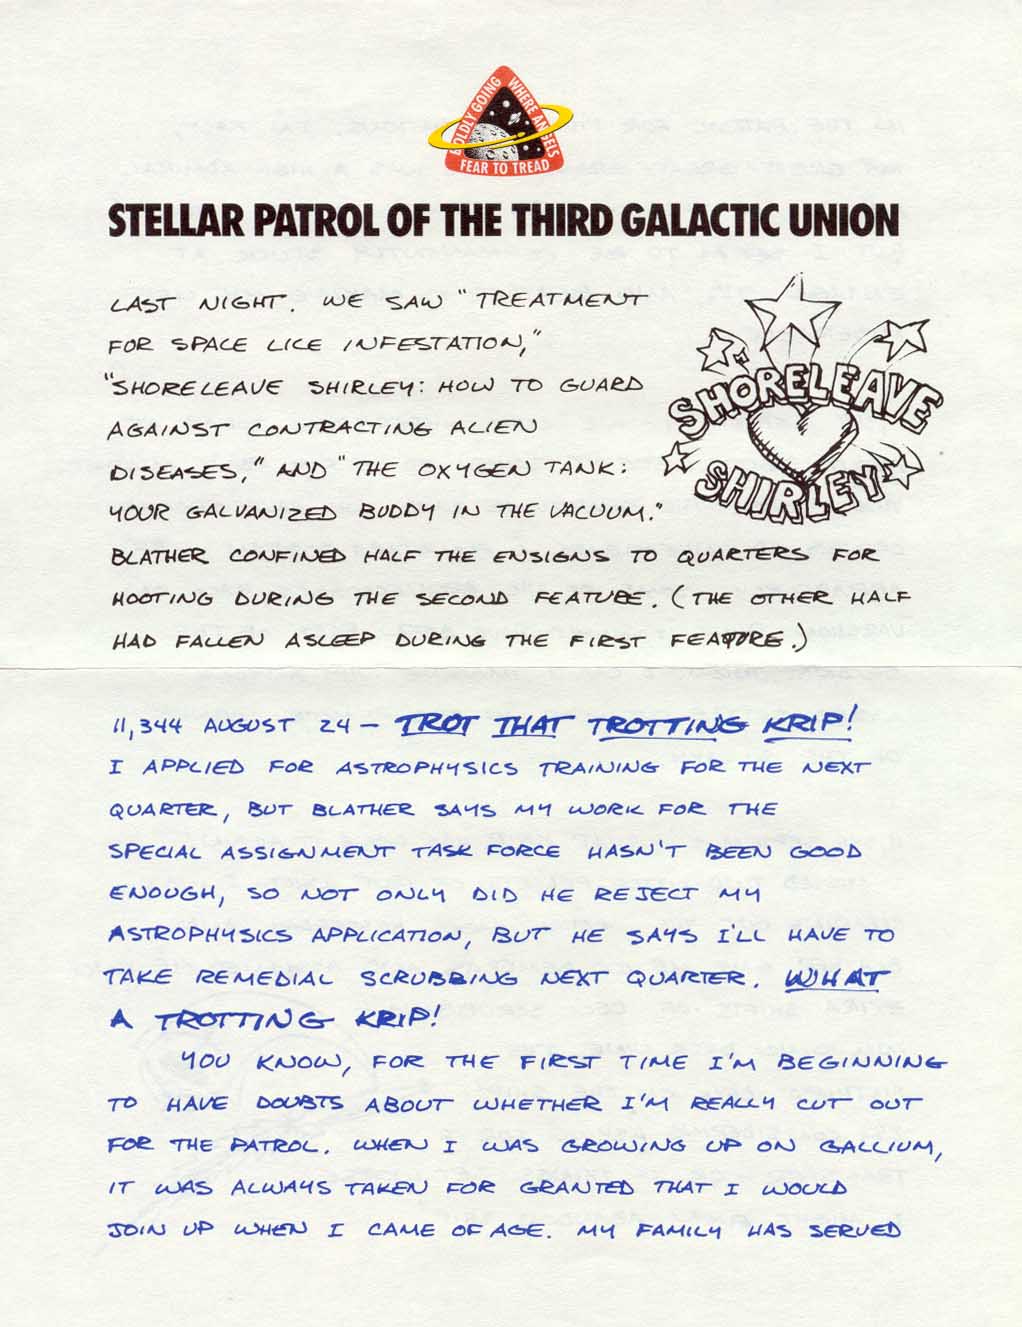 BOLDLY GOING WHERE ANGELS
FEAR TO TREAD
STELLAR PATROL OF THE THIRD GALACTIC UNION
LAST NIGHT. WE SAW "TREATMENT
FOR SPACE LICE INFESTATION,"
"SHORELEAVE SHIRLEY: HOW TO GUARD
AGAINST CONTRACTING ALIEN
DISEASES," AND "THE OXYGEN TANK:
YOUR GALVANIZED BUDDY IN THE VACUUM."
SHORELEAVE
SHIRLEY
BLATHER CONFINED HALF THE ENSIGNS TO QUARTERS FOR
HOOTING DURING THE SECOND FEATURE. (THE OTHER HALF
HAD FALLEN ASLEEP DURING THE FIRST FEATURE.)
11,344 AUGUST 24 — TROT THAT TROTTING KRIP!
I APPLIED FOR ASTROPHYSICS TRAINING FOR THE NEXT
QUARTER, BUT BLATHER SAYS MY WORK FOR THE
SPECIAL ASSIGNMENT TASK FORCE HASN'T BEEN GOOD
ENOUGH, SO NOT ONLY DID HE REJECT MY
ASTROPHYSICS APPLICATION, BUT HE SAYS I'LL HAVE TO
TAKE REMEDIAL SCRUBBING NEXT QUARTER. WHAT
A TROTTING KRIP!
YOU KNOW, FOR THE FIRST TIME I'M BEGINNING
TO HAVE DOUBTS ABOUT WHETHER I'M REALLY CUT OUT
FOR THE PATROL. WHEN I WAS GROWING UP ON GALLIUM,
IT WAS ALWAYS TAKEN FOR GRANTED THAT I WOULD
JOIN UP WHEN I CAME OF AGE. MY FAMILY HAS SERVED